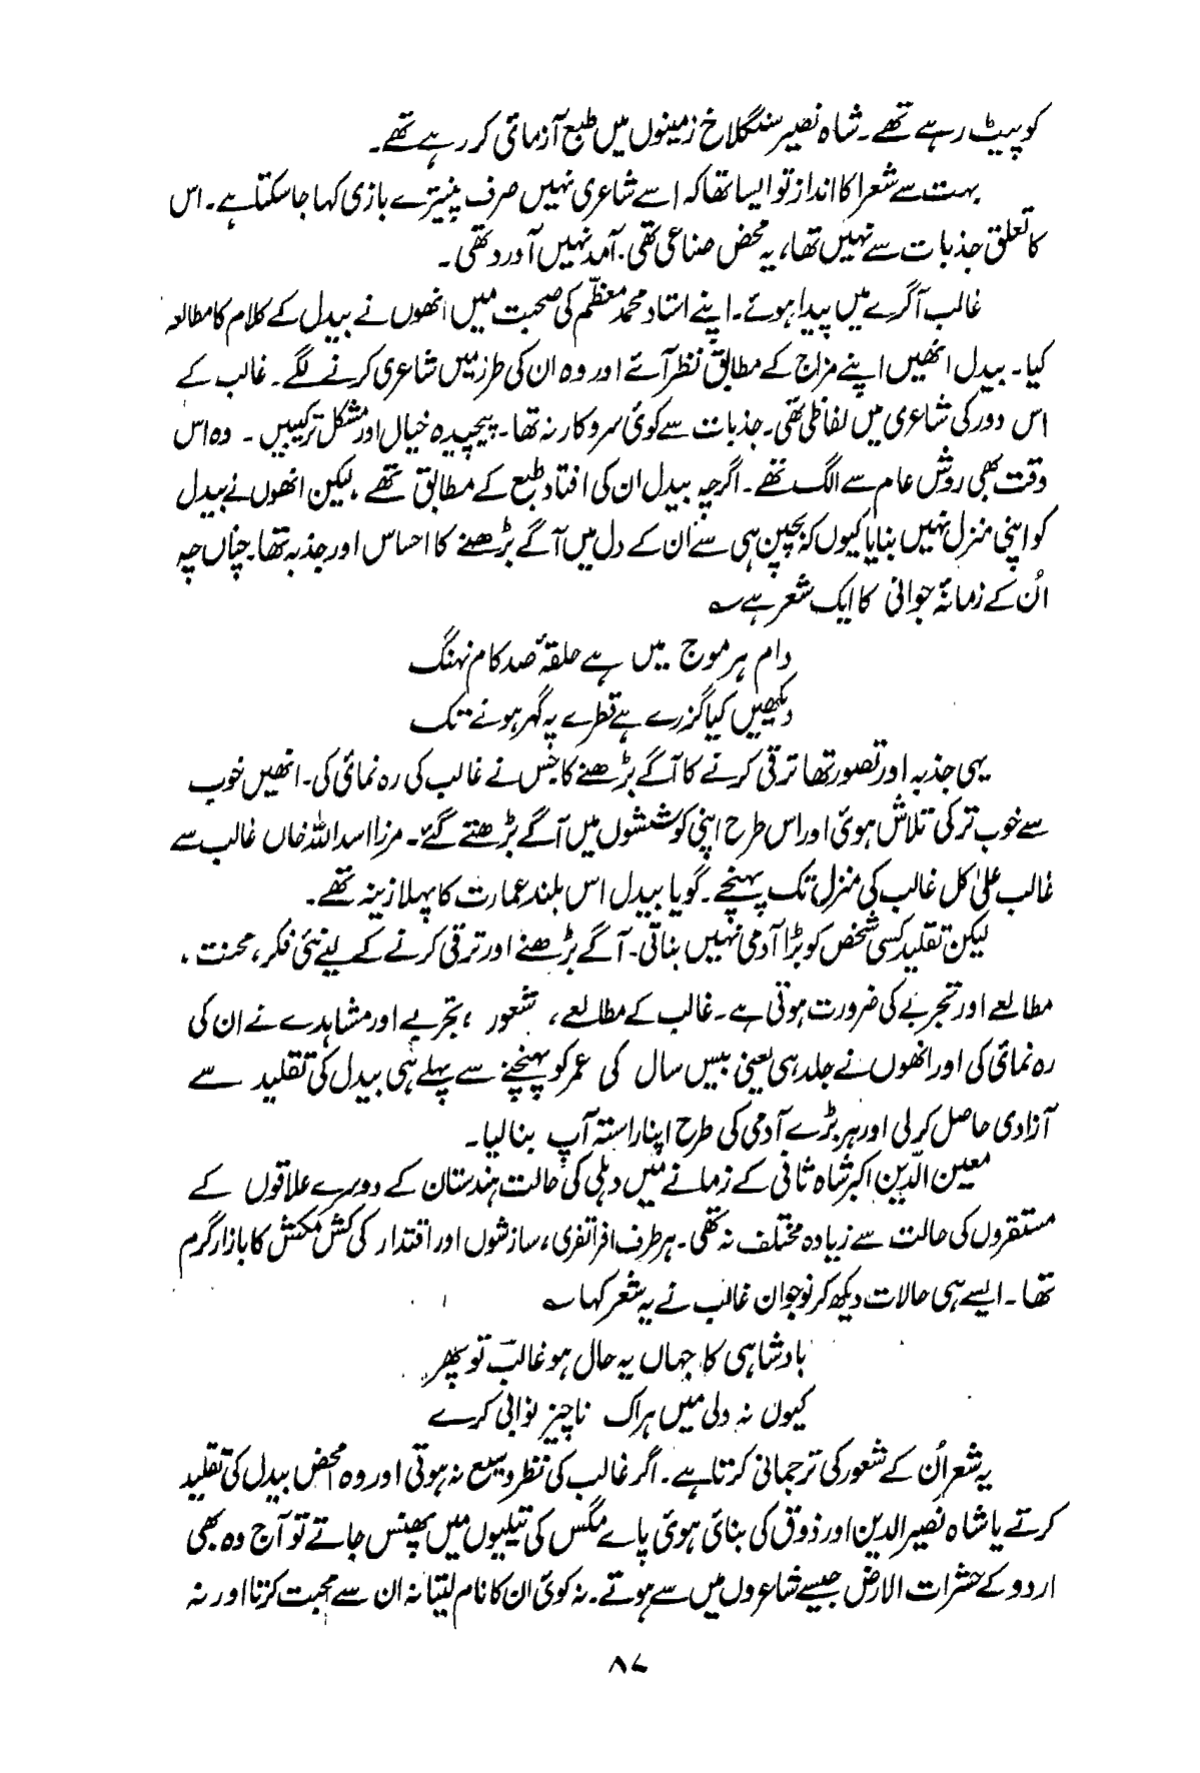 کو پیٹ رہے تھے۔ شاہ نصیر سنگلاخ زمینوں میں طبع آزمائی کر رہے تھے۔
بہت سے شعرا کا انداز تو ایسا تھا کہ اسے شاعری نہیں صرف پنیترے بازی کہا جا سکتا ہے۔ اس
کا تعلق جذبات سے نہیں تھا، یہ محض صناعی تھی۔ آمد نہیں آورد تھی۔
غالب آگرے میں پیدا ہوئے۔ اپنے استاد محمد معظّم کی صحبت میں انھوں نے بیدل کے کلام کا مطالعہ
کیا۔ بیدل انھیں اپنے مزاج کے مطابق نظر آئے اور وہ ان کی طرز میں شاعری کرنے لگے۔ غالب کے
اس دور کی شاعری میں لفاظی تھی۔ جذبات سے کوئی سروکار نہ تھا۔ پیچیدہ خیال اور مشکل ترکیبیں۔ وہ اس
وقت بھی روش عام سے الگ تھے۔ اگرچہ بیدل ان کی افتاد طبع کے مطابق تھے، لیکن انھوں نے بیدل
کو اپنی منزل نہیں بنایا کیوں کہ بچپن ہی سے اُن کے دل میں آگے بڑھنے کا احساس اور جذبہ تھا۔ چناں چہ
اُن کے زمانۂ جوانی کا ایک شعر ہے ؎
دام ہر موج میں ہے حلقۂ صد کام نہنگ
دیکھیں کیا گزرے ہے قطرے پہ گہر ہونے تک
یہی جذبہ اور تصور تھا ترقی کرنے کا آگے بڑھنے کا جس نے غالب کی رہ نمائی کی۔ انھیں خوب
سے خوب تر کی تلاش ہوئی اور اس طرح اپنی کوششوں میں آگے بڑھتے گئے۔ مرزا اسد اللہ خاں غالب سے
غالب علیٰ کل غالب کی منزل تک پہنچے۔ گویا بیدل اس بلند عمارت کا پہلا زینہ تھے۔
لیکن تقلید کسی شخص کو بڑا آدمی نہیں بناتی۔ آگے بڑھنے اور ترقی کرنے کے لیے نئی فکر، محنت،
مطالعے اور تجربے کی ضرورت ہوتی ہے۔ غالب کے مطالعے، شعور، تجربے اور مشاہدے نے ان کی
رہ نمائی کی اور انھوں نے جلد ہی یعنی بیس سال کی عمر کو پہنچنے سے پہلے ہی بیدل کی تقلید سے
آزادی حاصل کر لی اور ہر بڑے آدمی کی طرح اپنا راستہ آپ بنا لیا۔
معین الدّین اکبر شاہ ثانی کے زمانے میں دہلی کی حالت ہندستان کے دوسرے علاقوں کے
مستقروں کی حالت سے زیادہ مختلف نہ تھی۔ ہر طرف افراتفری، سازشوں اور اقتدار کی کش مکش کا بازار گرم
تھا۔ ایسے ہی حالات دیکھ کر نوجوان غالب نے یہ شعر کہا ؎
بادشاہی کا جہاں یہ حال ہو غالبؔ تو پھر
کیوں نہ دلی میں ہر اک ناچیز نوابی کرے
یہ شعر اُن کے شعور کی ترجمانی کرتا ہے۔ اگر غالب کی نظر وسیع نہ ہوتی اور وہ محض بیدل کی تقلید
کرتے یا شاہ نصیر الدین اور ذوق کی بنائی ہوئی پاے مگس کی تیلیوں میں پھنس جاتے تو آج وہ بھی
اردو کے حشرات الارض جیسے شاعروں میں سے ہوتے۔ نہ کوئی ان کا نام لیتا نہ ان سے محبت کرتا اور نہ
۸۷